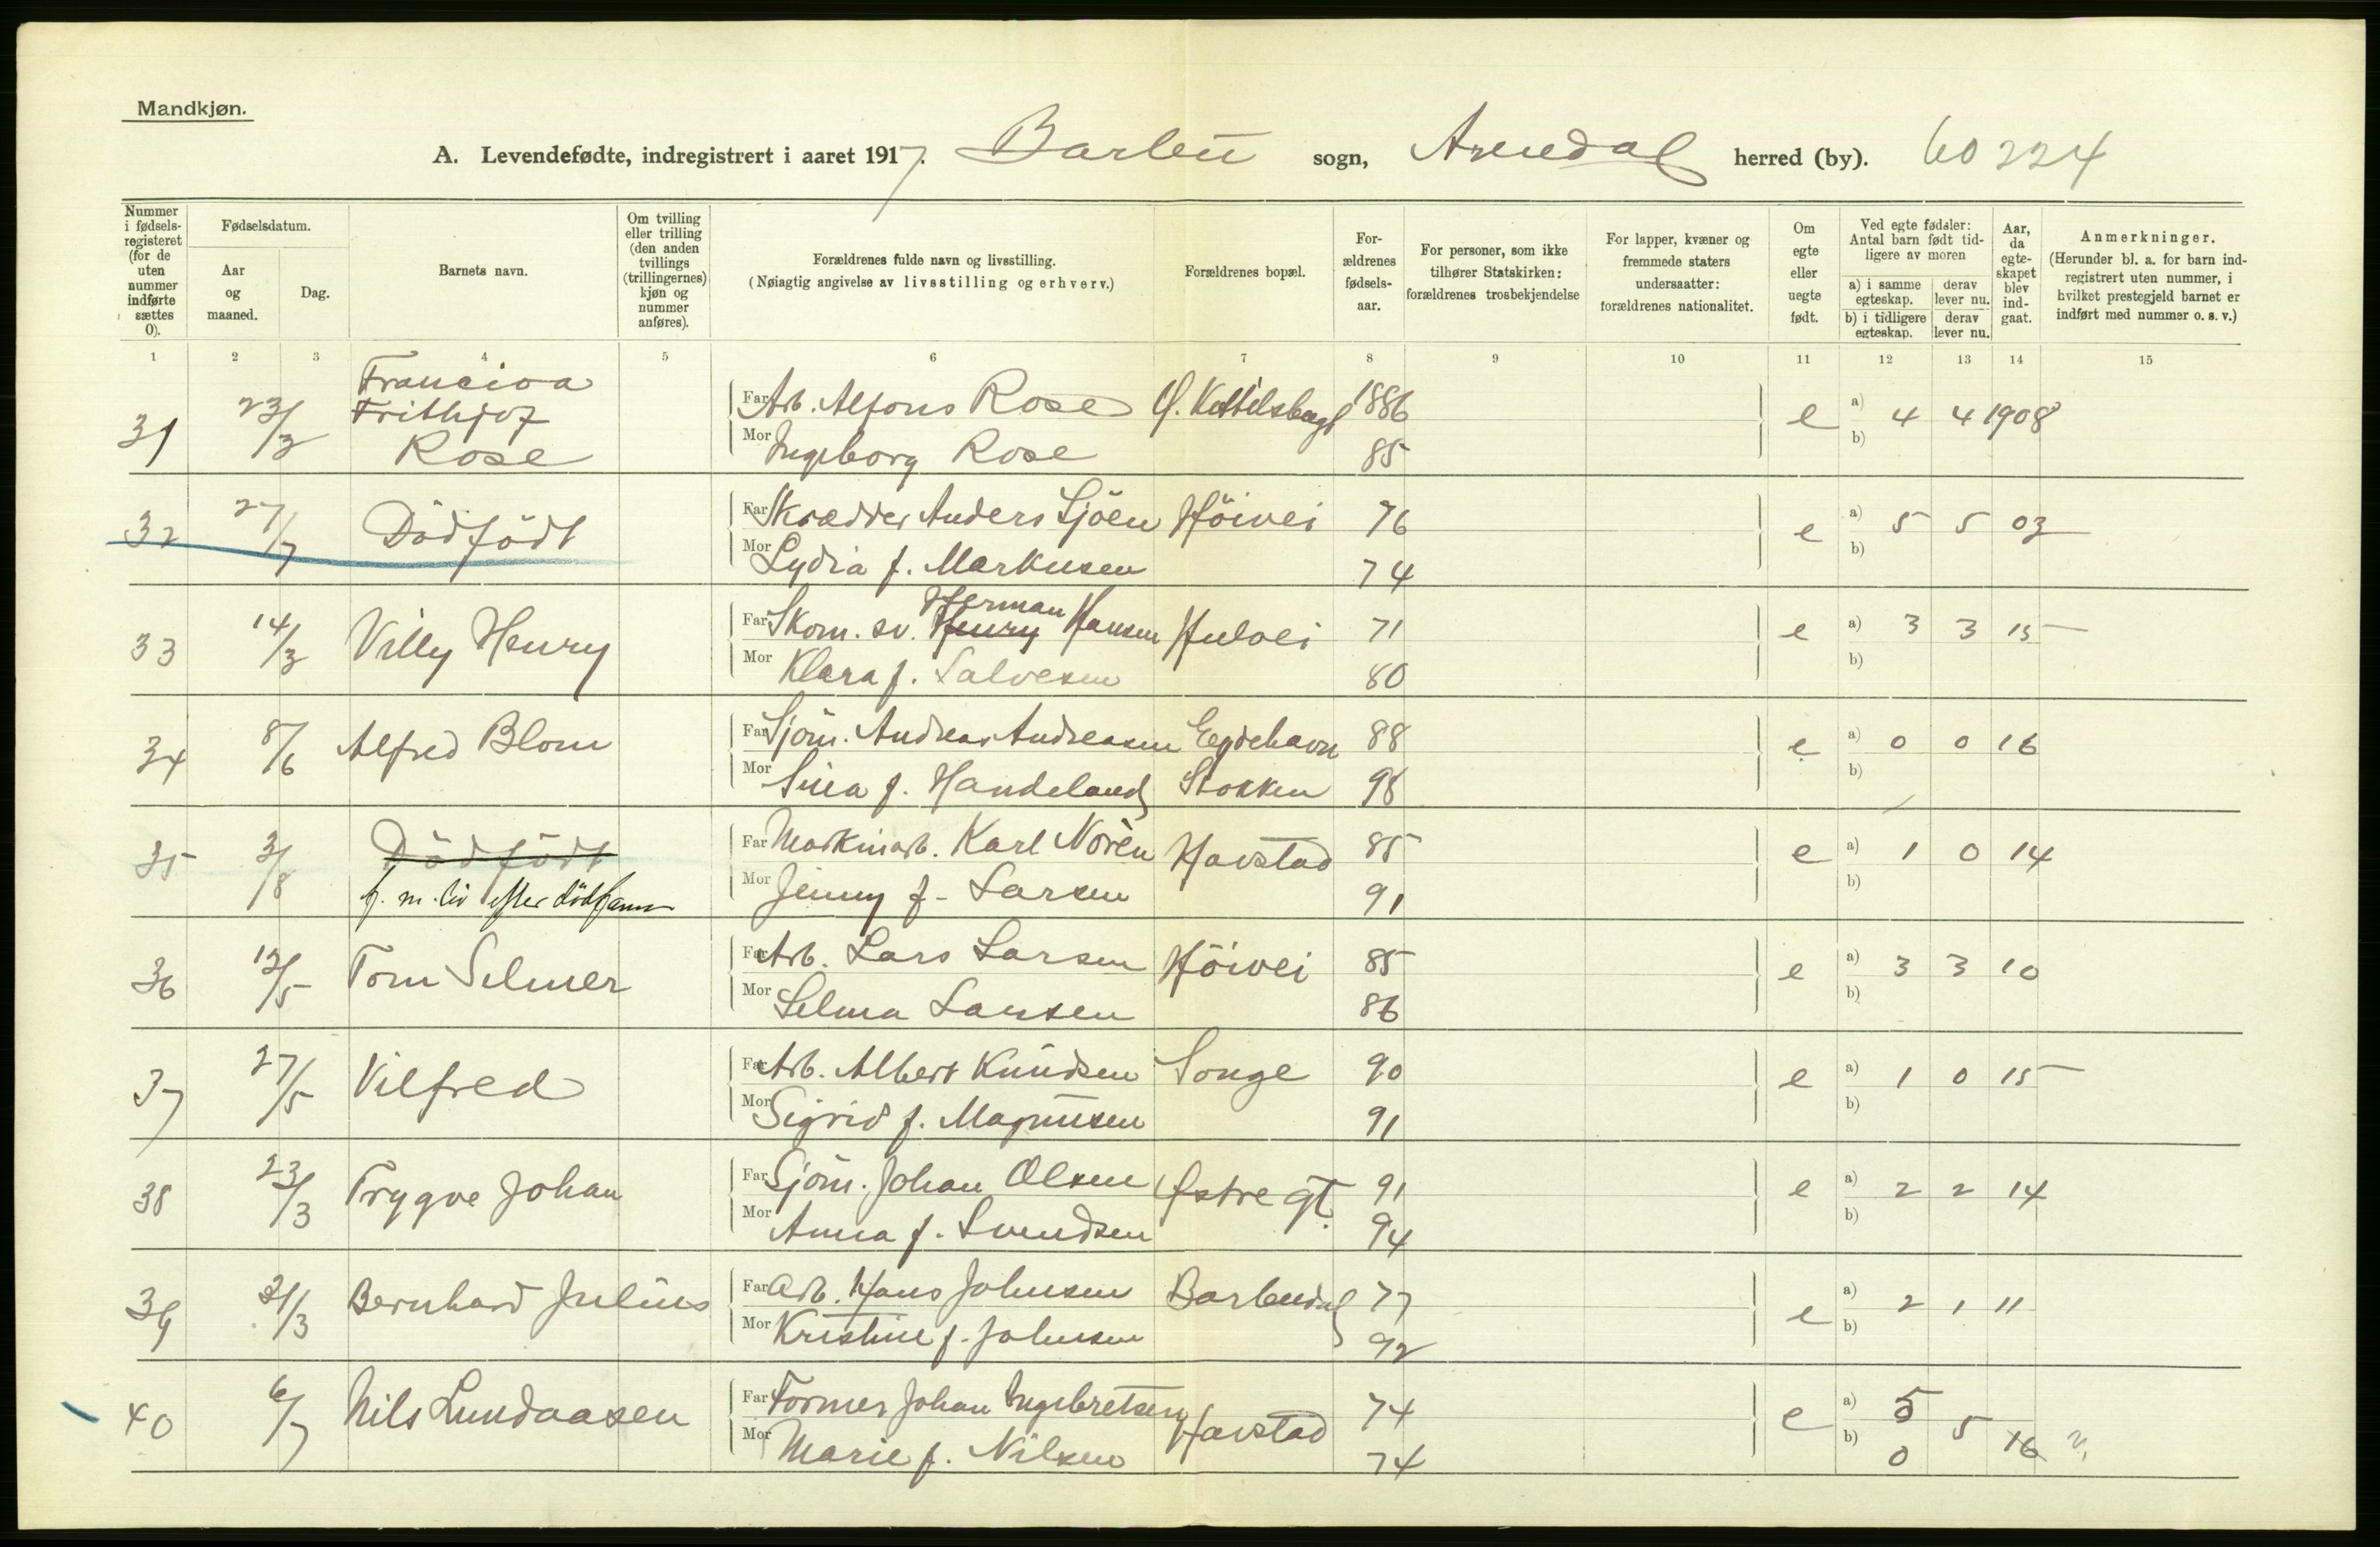 Mandkjøn.
A. Levendefødte, indregistrert i aaret 1917. Barbu sogn, Arendal herred (by). 60224
Nummer i fødselsregisteret (for de uten nummer indførte sættes 0).
Fødselsdatum.
Aar og maaned.
Dag.
Barnets navn.
Om tvilling eller trilling (den anden tvillings (trillingernes) kjøn og nummer anføres).
Forældrenes fulde navn og livsstilling.
(Nøiagtig angivelse av livsstilling og erhverv.)
Forældrenes bopæl.
Forældrenes fødselsaar.
For personer, som ikke tilhører Statskirken: forældrenes trosbekjendelse
For lapper, kvæner og fremmede staters undersaatter: forældrenes nationalitet.
Om egte eller uegte født.
Ved egte fødsler: Antal barn født tidligere av moren
a) i samme egteskap.
derav lever nu.
b) i tidligere egteskap.
derav lever nu.
Aar, da egteskapet blev indgaat.
Anmerkninger.
(Herunder bl. a. for barn indregistrert uten nummer, i hvilket prestegjeld barnet er indført med nummer o. s. v.)
1 2 3 4 5 6 7 8 9 10 11 12 13 14 15
31 23/3 Frithjof Rose
Far Arb. Alfons Rose 1886 e a) 4 4 1908
Mor Ingeborg Rose 85 b)
32 27/7 Dödfödt
Far Skrædder Anders Sjöen Höivei 76 e a) 5 5 03
Mor Lydia f. Markusen 74 b)
33 14/3 Villy Henry
Far Skom. sv. Henry Herman Hansen Hulvei 71 e a) 3 3 15
Mor Klara f. Salvesen 80 b)
34 8/6 Alfred Blom
Far Sjöm. Andreas Andreasen Eydehavn 88 e a) 0 0 16
Mor Sina f. Handeland Stokken 98 b)
35 3/8 Dödfödt
f. m. liv efter dödsanm
Far Maskinarb. Karl Norèn Havstad 85 e a) 1 0 14
Mor Jenny f. Larsen 91 b)
36 12/5 Tom Selmer
Far Arb. Lars Larsen Höivei 85 e a) 3 3 10
Mor Selma Larsen 86 b)
37 27/5 Vilfred
Far Arb. Albert Knudsen Songe 90 e a) 1 0 15
Mor Sigrid f. Magnusen 91 b)
38 23/3 Trygve Johan
Far Sjöm. Johan Olsen Østre gt. 91 e a) 2 2 14
Mor Anna f. Svendsen 94 b)
39 31/3 Bernhard Julius
Far Arb. Hans Johnsen Barbudal 77 e a) 2 1 11
Mor Kristine f. Johnsen 92 b)
40 6/7 Nils Lundaasen
Far Former Johan Ingebretsen Havstad 74 e a) 5 5 16 ?
Mor Marie f. Nilsen 74 b) 0